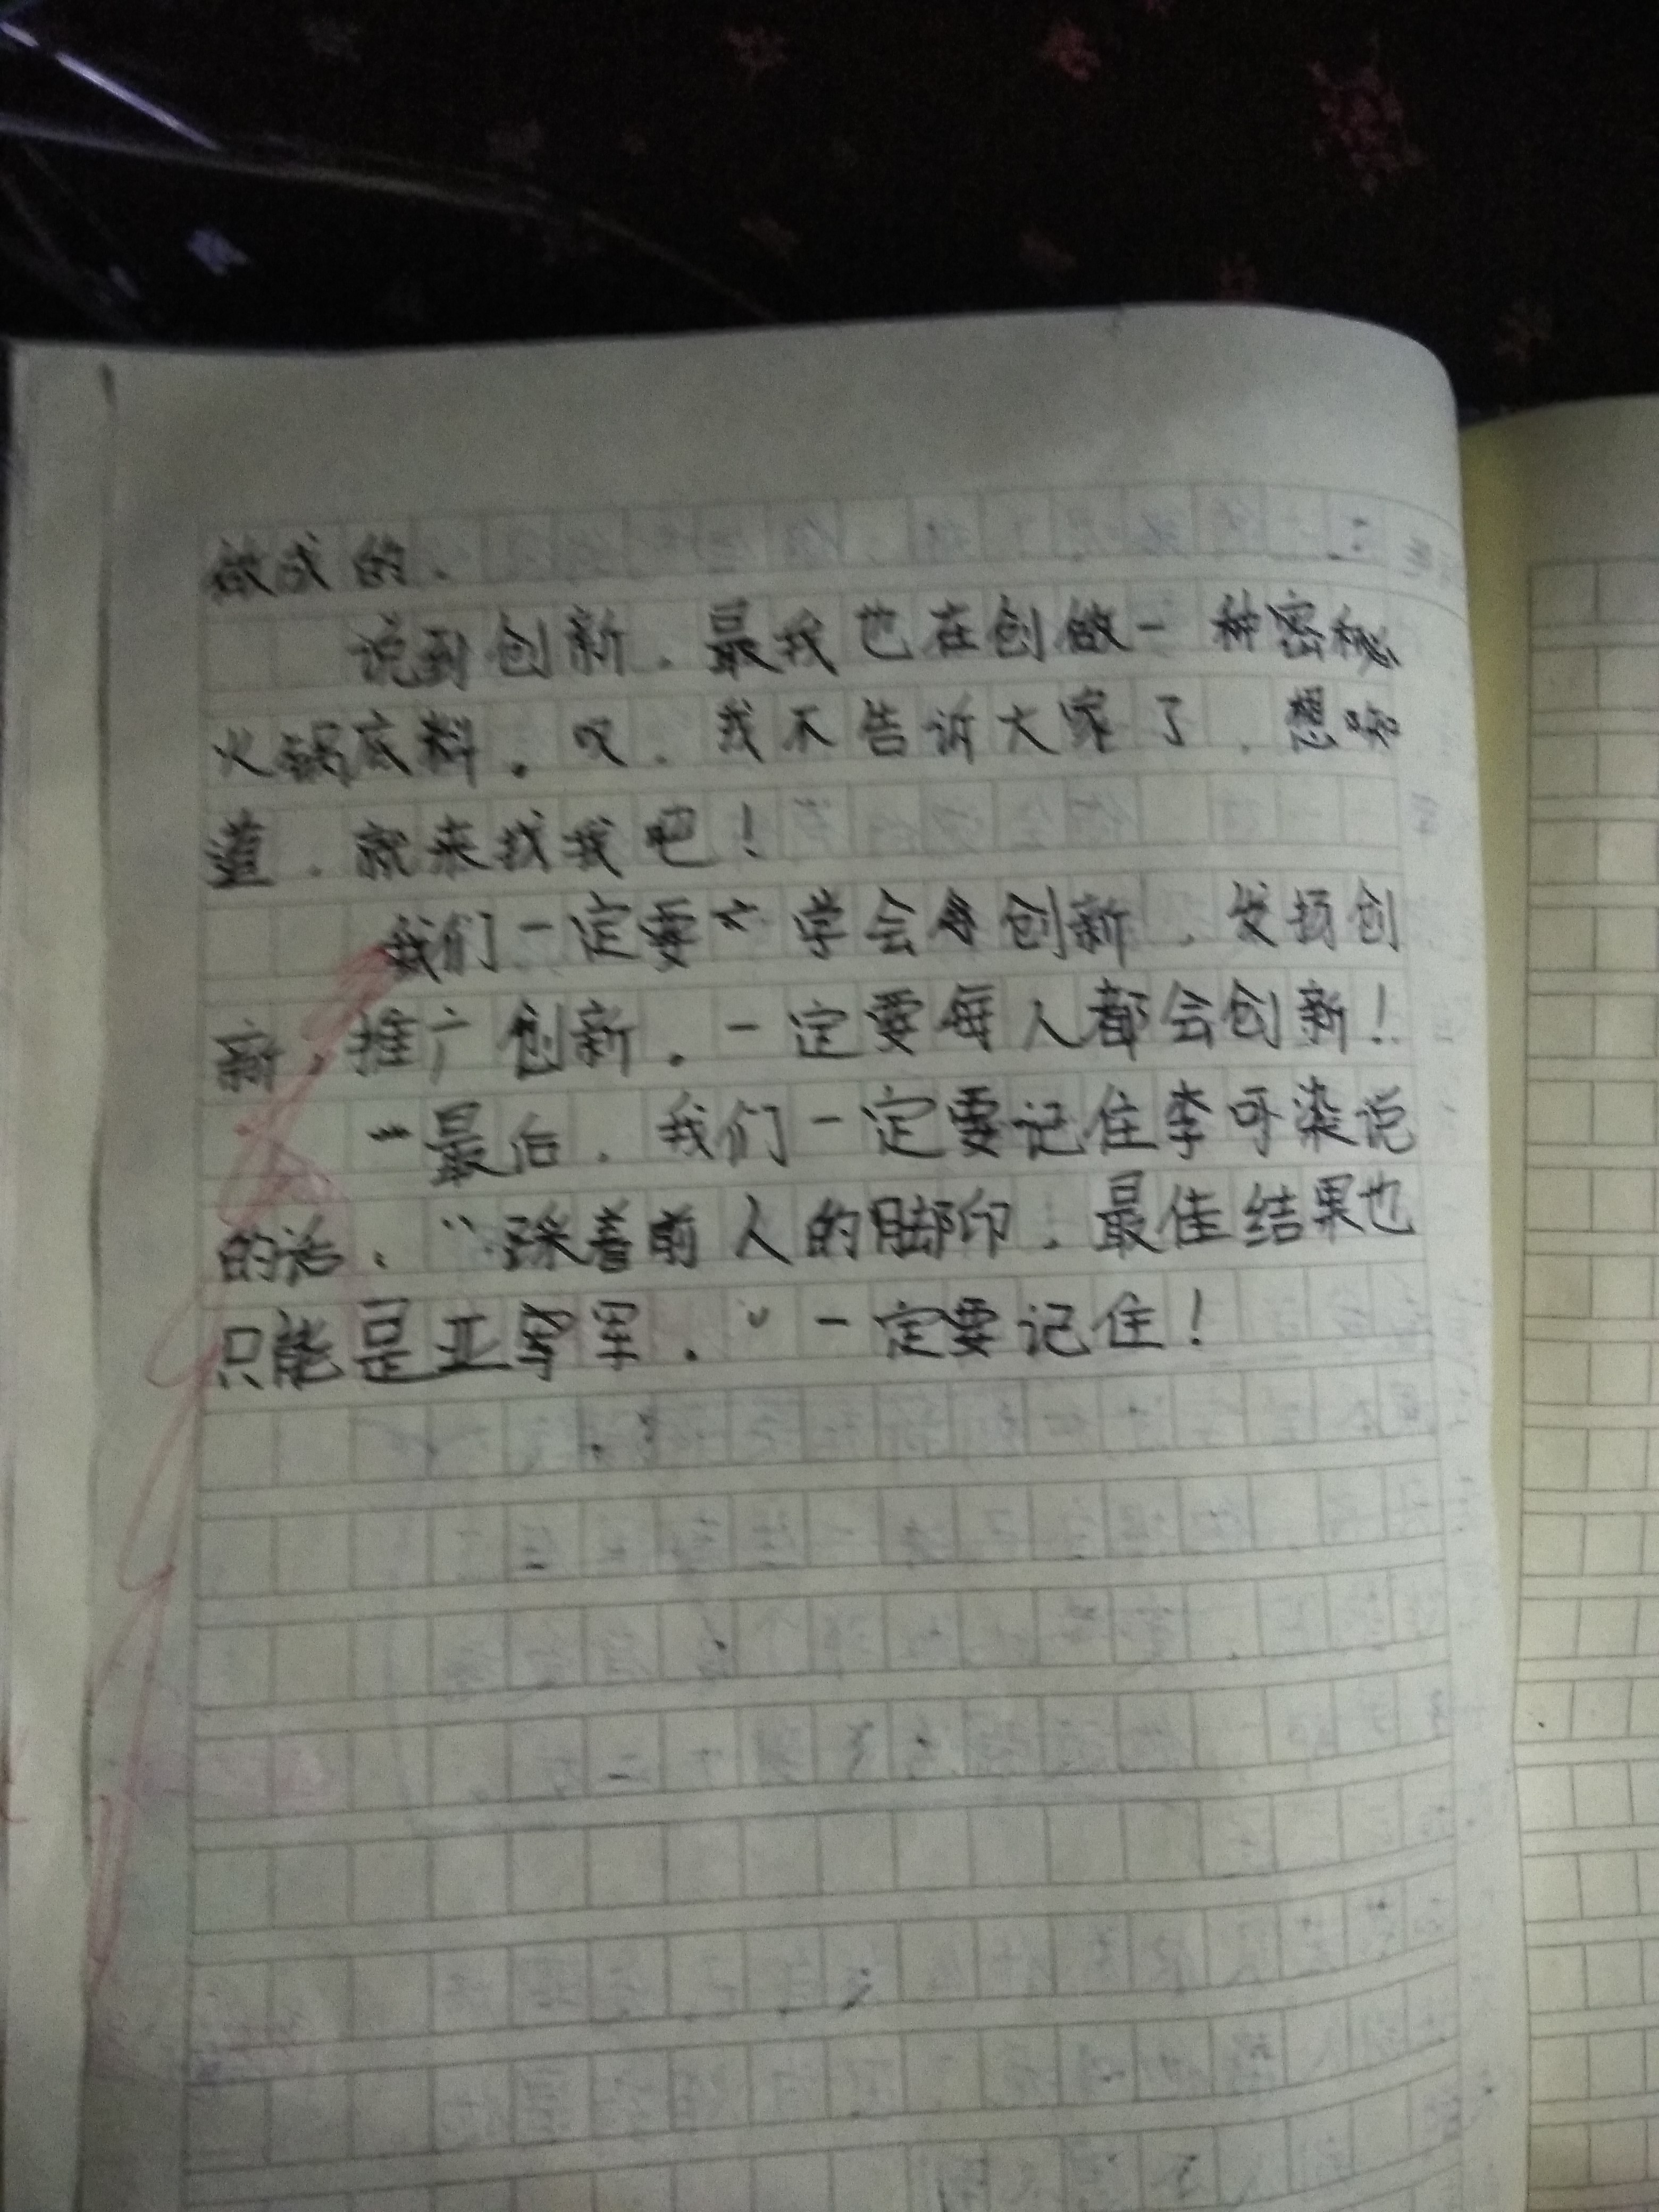 做成的.
说到创新.最我也在创做一种密秘
火锅底料.叹.我不告诉大家了.想知
道.就来找我吧!
我们一定要学会创新.发扬创
新.推广创新.一定要每人都会创新!
最后.我们一定要记住李可染说
的话."踩着前人的脚印.最佳结果也
只能是亚军."一定要记住!